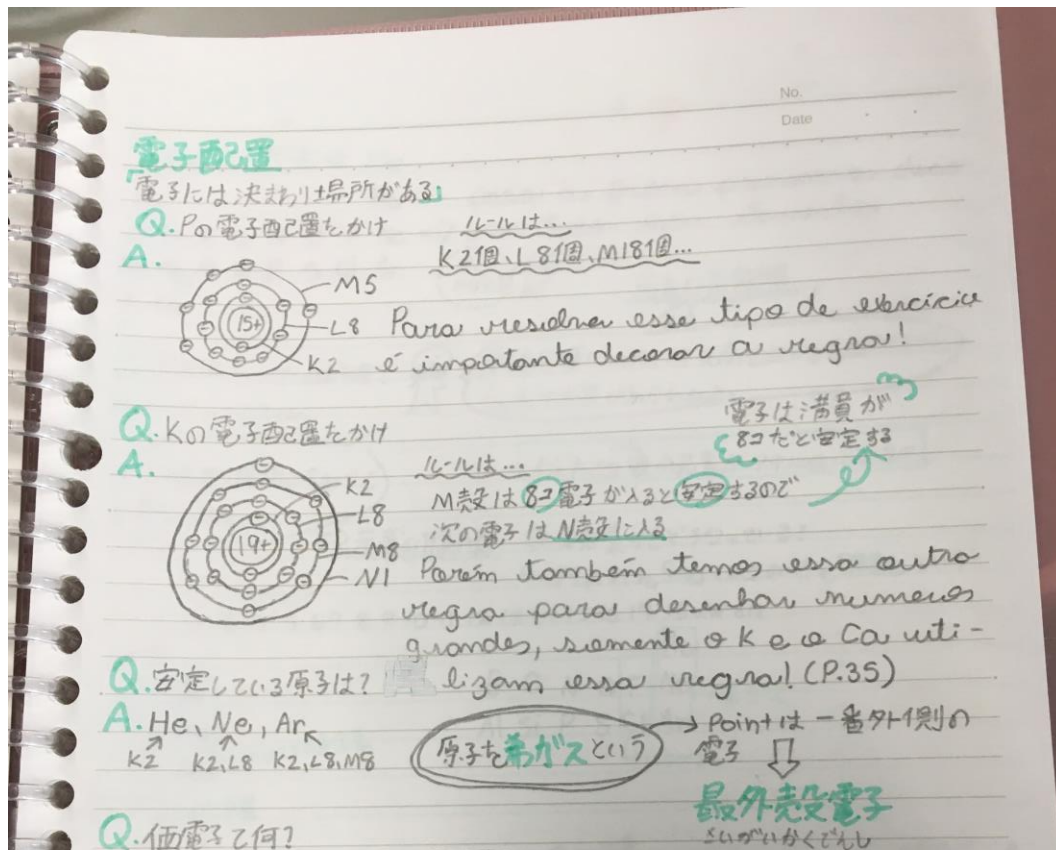 No.
Date
電子配置
「電子には決まり場所がある」
Q.Pの電子配置をかけ
ルールは…
K2個、L8個、M18個…
A.
15+
M5
L8
K2
Para resolver esse tipo de exercício
é importante decorar a regra!
Q.Kの電子配置をかけ
電子は満員が
8コだと安定する
A.
19+
K2
L8
M8
N1
ルールは…
M殻は8コ電子が入ると安定するので
次の電子はN殻に入る
Porém também temos essa outra
regra para desenhar numeros
grandes, somente o K e o Ca uti-
lizam essa regra! (P.35)
Q.安定している原子は?
A.He、Ne、Ar
K2 K2,L8 K2,L8,M8
原子を希ガスという
→Pointは一番外側の
電子
⇩
最外殻電子
さいがいかくでんし
Q.価電子て何?